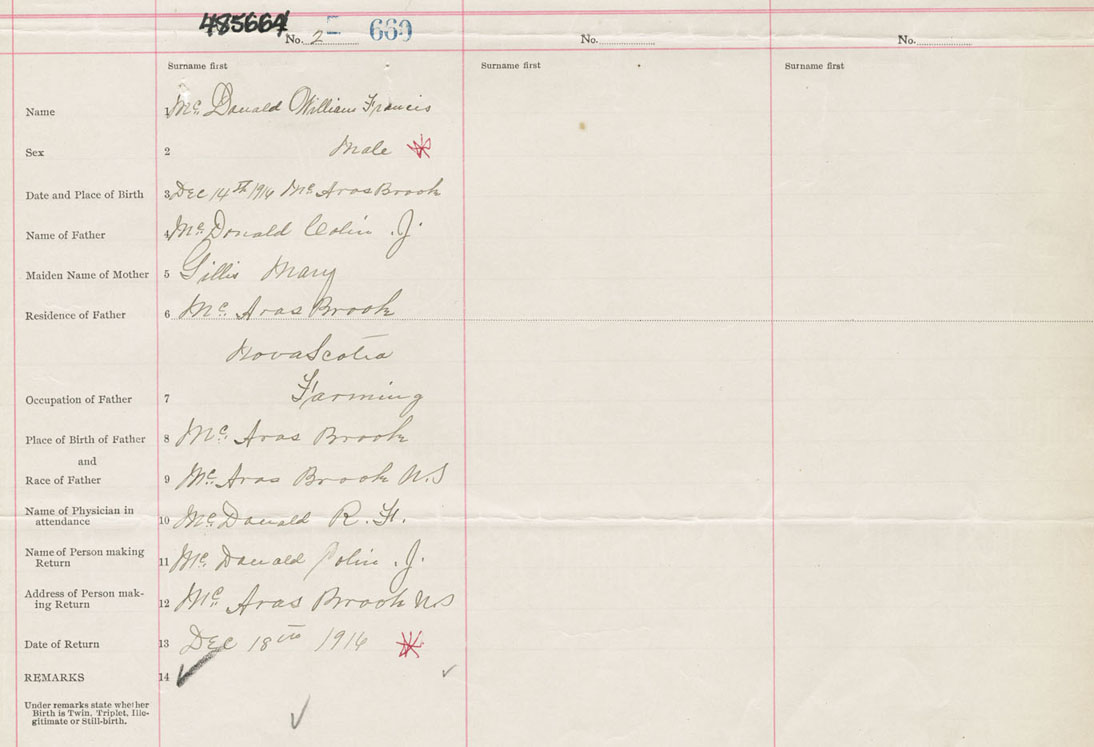 485664
No. 2 660 No. No.
Surname first Surname first Surname first
Name 1 Mc. Donald William Francis
Sex 2 Male
Date and Place of Birth 3 Dec 14th 1916 Mc Aras Brook
Name of Father 4 Mc. Donald Colin . J.
Maiden Name of Mother 5 Gillis Mary
Residence of Father 6 Mc. Aras Brook
Nova Scotia
Occupation of Father 7 Farming
Place of Birth of Father 8 Mc. Aras Brook
and
Race of Father 9 Mc. Aras Brook N.S
Name of Physician in
attendance 10 Mc. Donald R. F.
Name of Person making
Return 11 Mc. Donald Colin . J.
Address of Person mak-
ing Return 12 Mc. Aras Brook N.S
Date of Return 13 Dec 18th 1916
REMARKS 14
Under remarks state whether
Birth is Twin, Triplet, Ille-
gitimate or Still-birth.